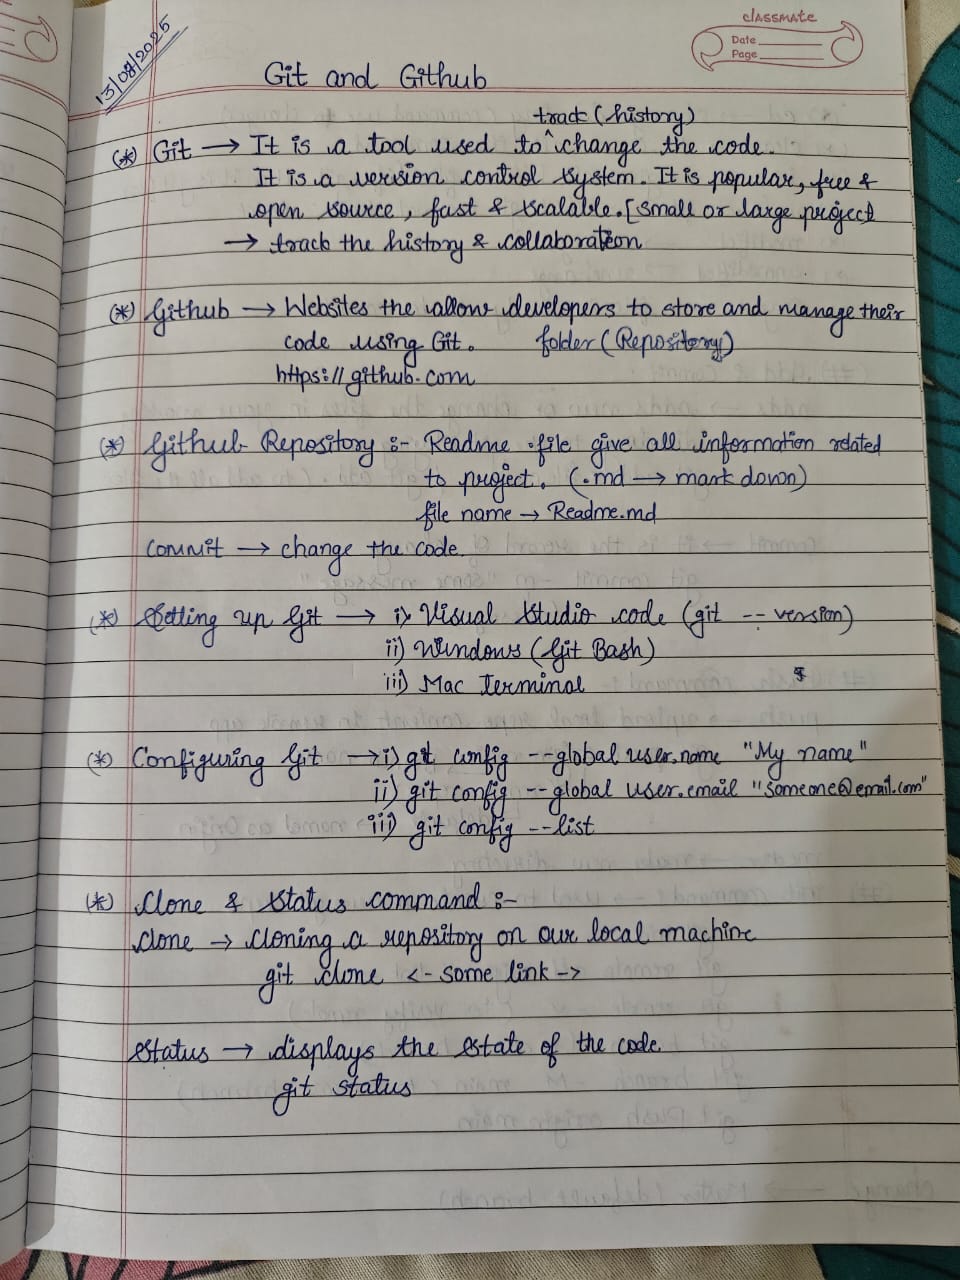 classmate
Date
Page
13/08/2025
Git and Github
track (history)
(*) Git → It is a tool used to ^ change the code.
It is a version control system. It is popular, free &
open source, fast & scalable. [small or large project]
→ track the history & collaboration
(*) Github → Websites the allows developers to store and manage their
code using Git. folder (Repository)
https://github.com
(*) Github Repository :- Readme .file give all information related
to project. (.md → mark down)
file name → Readme.md
Commit → change the code.
(*) Setting up Git → i) Visual Studio code (git -- version)
ii) Windows (Git Bash)
iii) Mac Terminal
(*) Configuring Git → i) git config --global user.name "My name"
ii) git config --global user.email "someone@email.com"
iii) git config --list
(*) Clone & Status command :-
Clone → Cloning a repository on our local machine
git clone <- some link ->
Status → displays the state of the code.
git status